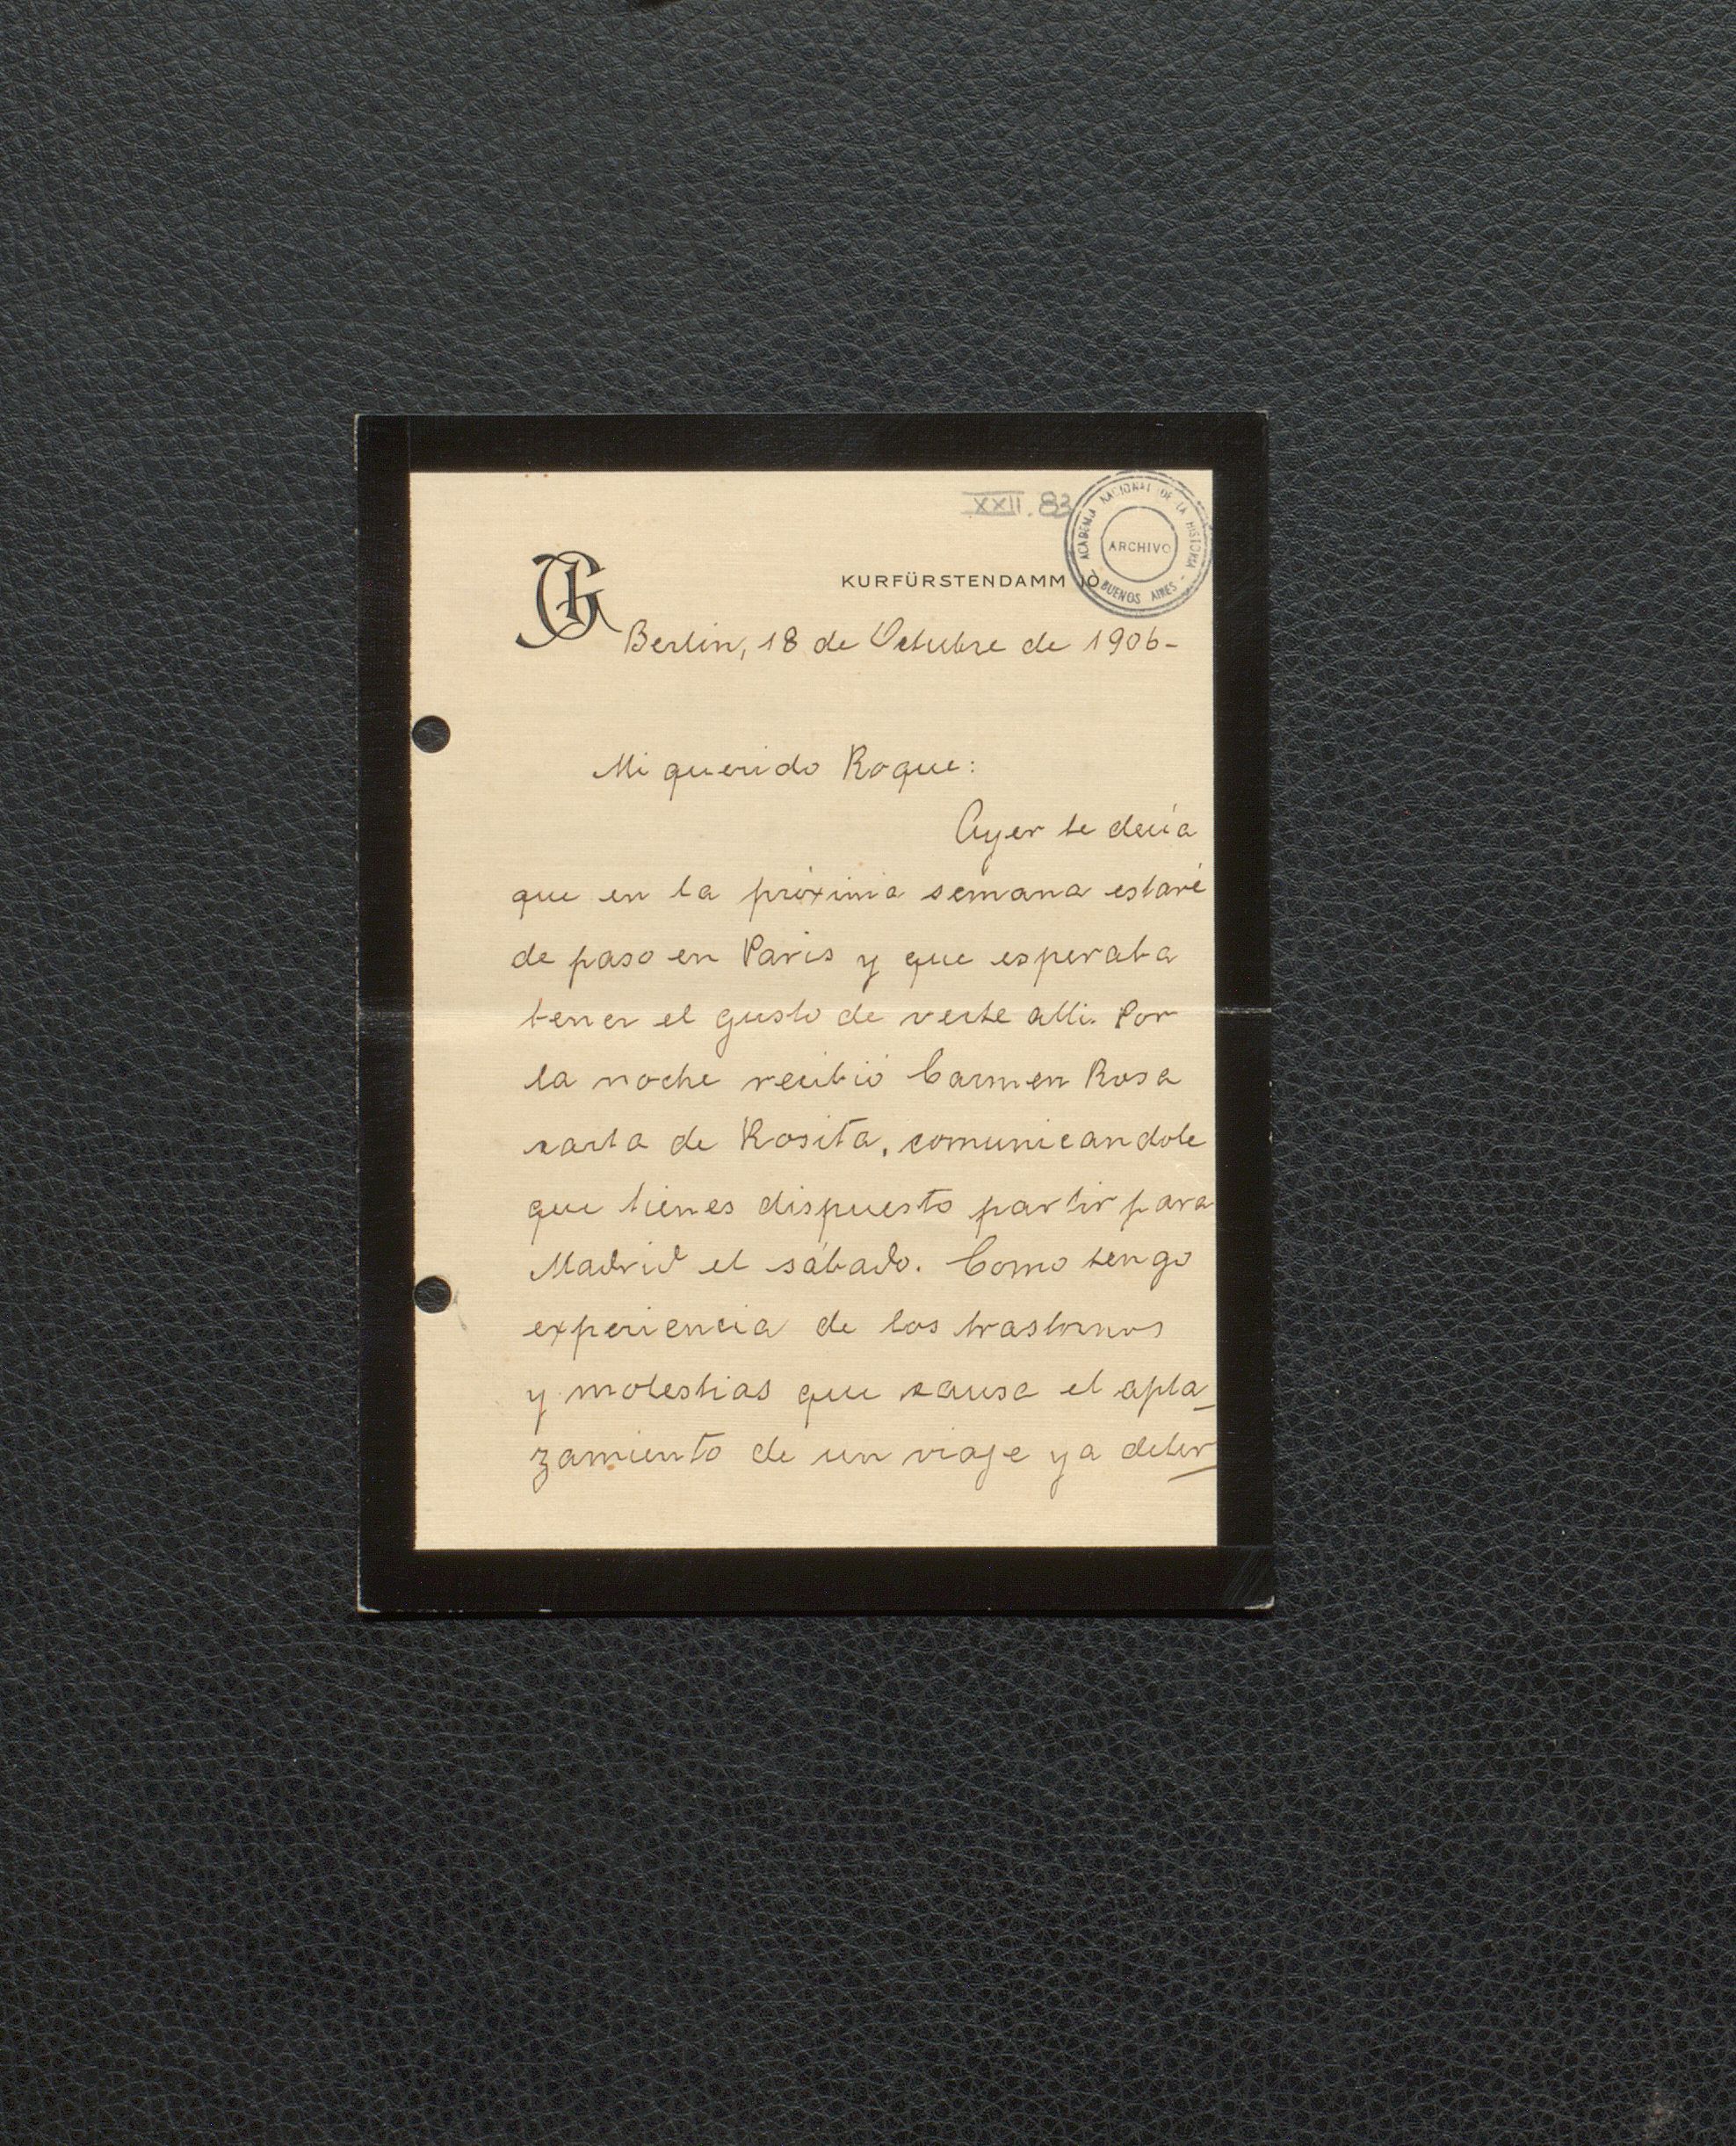 XXII. 83
ACADEMIA NACIONAL DE LA HISTORIA
ARCHIVO
BUENOS AIRES
KURFÜRSTENDAMM 10
Berlin, 18 de Octubre de 1906-
Mi querido Roque:
Ayer te decía
que en la próxima semana estaré
de paso en Paris y que esperaba
tener el gusto de verte alli. Por
la noche recibió Carmen Rosa
carta de Rosita, comunicandole
que tienes dispuesto partir para
Madrid el sábado. Como tengo
experiencia de los trastornos
y molestias que causa el apla_
zamiento de un viaje ya deter_